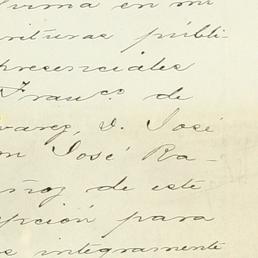 firma en mi
crituras públi-
presenciales
Franco. de
varez, D. José
on José Ra-
ñoz de este
epción para
s integramente